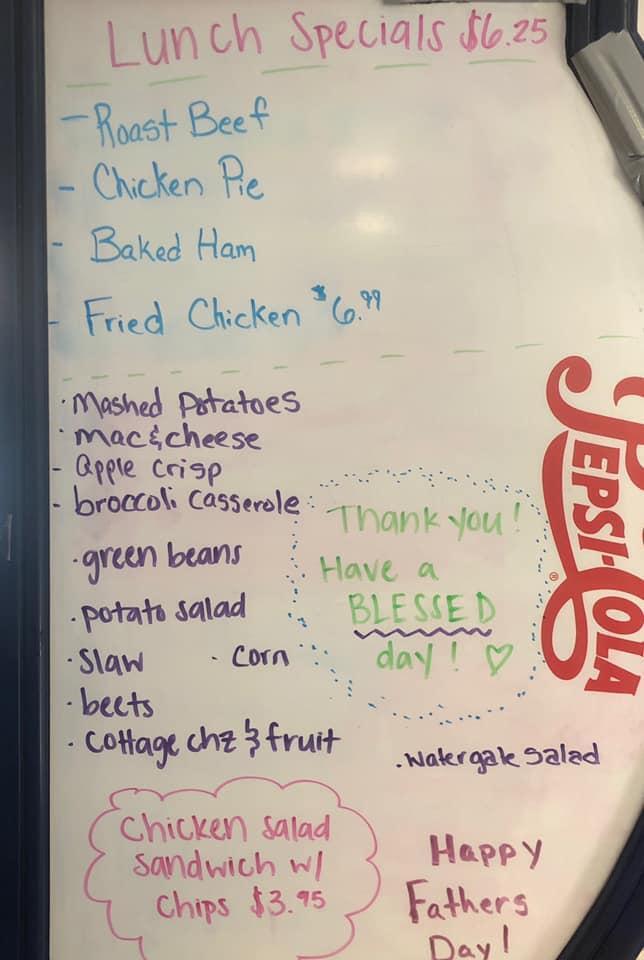 Lunch Specials $6.25
- Roast Beef
- Chicken Pie
- Baked Ham
- Fried Chicken $6.99
· Mashed Potatoes
· Mac & cheese
- apple crisp
- broccoli casserole
· green beans
· potato salad
· Slaw · Corn
· beets
· Cottage chz & fruit
· Watergate Salad
Thank you!
Have a
BLESSED
day! ♡
PEPSI-COLA®
Chicken Salad
Sandwich w/
Chips $3.95
Happy
Fathers
Day!